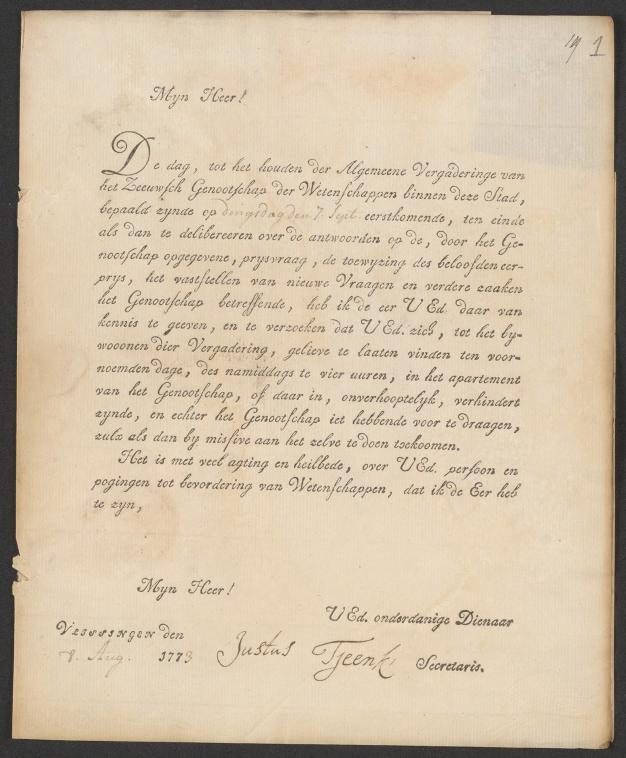 19 1
Myn Heer!
De dag, tot het houden der Algemeene Vergaderinge van
het Zeeuwsch Genootschap der Wetenschappen binnen deze Stad,
bepaald zynde op dingsdag den 7. Sept. eerstkomende, ten einde
als dan te delibereeren over de antwoorden op de, door het Ge-
nootschap opgegevene, prysvraag, de toewyzing des beloofden eer-
prys, het vaststellen van nieuwe Vraagen en verdere zaaken
het Genootschap betreffende, heb ik de eer UEd. daar van
kennis te geeven, en te verzoeken dat UEd. zich, tot het by-
wooonen dier Vergadering, gelieve te laaten vinden ten voor-
noemden dage, des namiddags te vier uuren, in het apartement
van het Genootschap, of daar in, onverhooptelyk, verhindert
zynde, en echter het Genootschap iet hebbende voor te draagen,
zulx als dan by missive aan het zelve te doen toekoomen.
Het is met veel agting en heilbede, over UEd. persoon en
pogingen tot bevordering van Wetenschappen, dat ik de Eer heb
te zyn,
Myn Heer!
UEd. onderdanige Dienaar
VLISSINGEN den
8. Aug. 1773 Justus Tjeenk Secretaris.